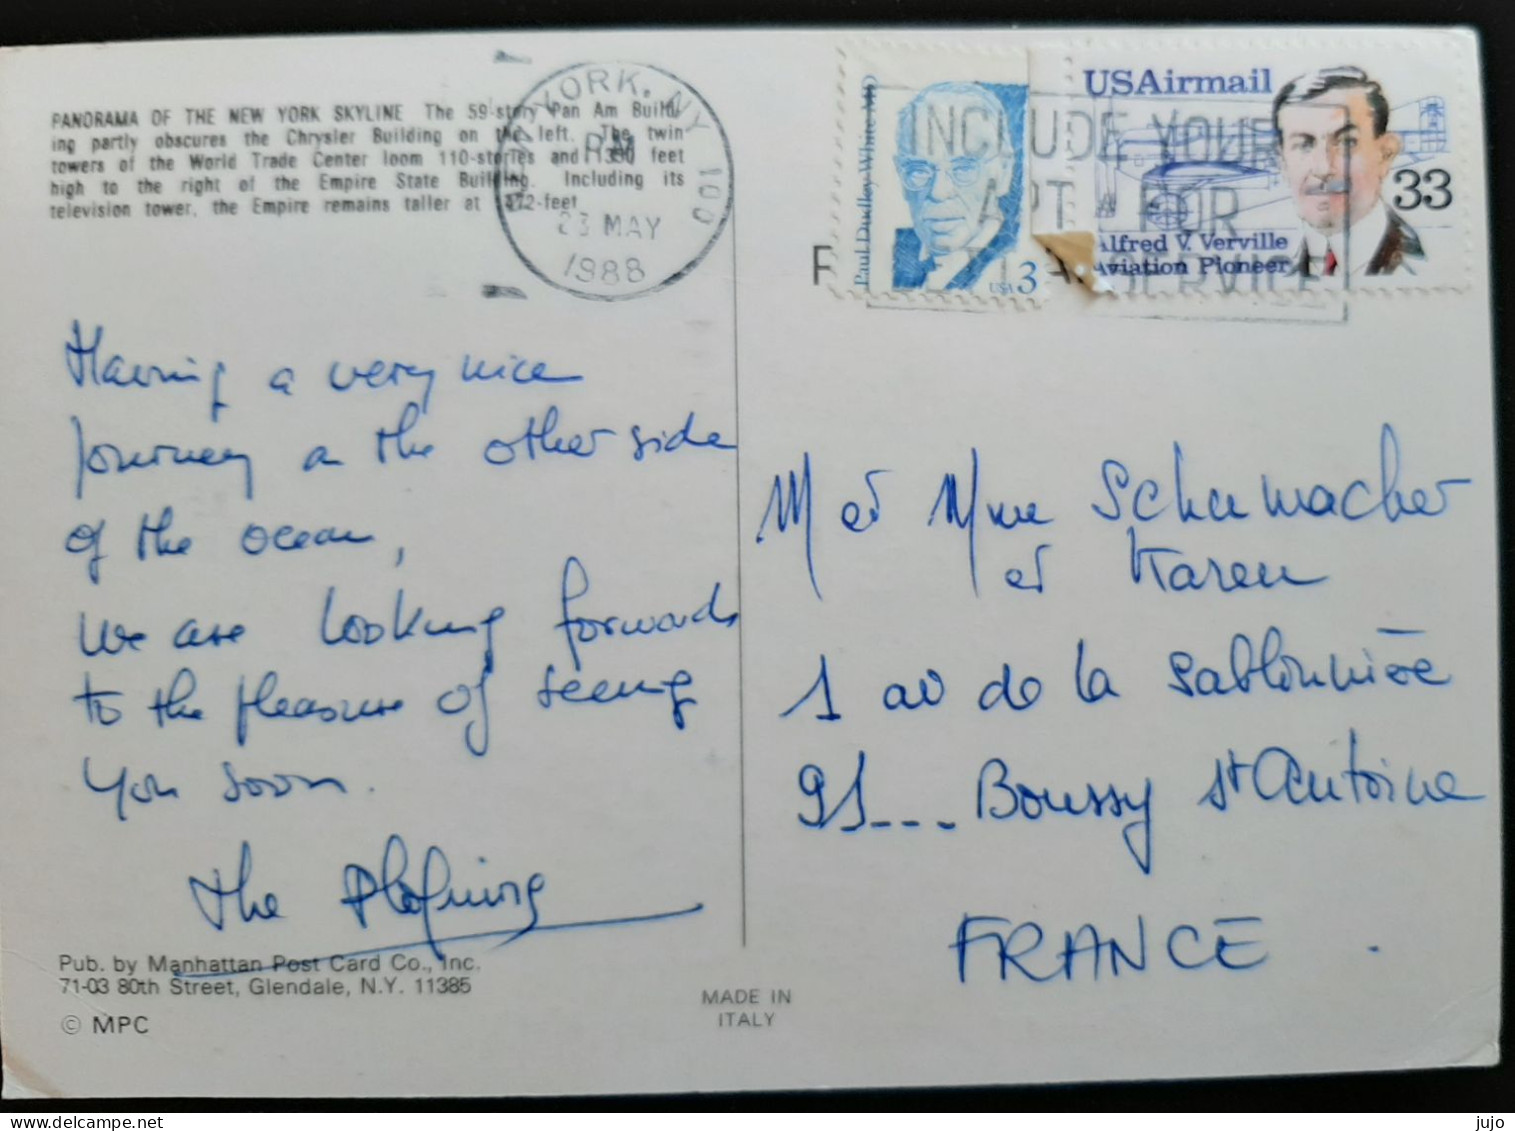 PANORAMA OF THE NEW YORK SKYLINE The 59-story Pan Am Build-
ing partly obscures the Chrysler Building on the left. The twin
towers of the World Trade Center loom 110-stories and 1350 feet
high to the right of the Empire State Building. Including its
television tower, the Empire remains taller at 1472-feet.
YORK, NY 100
PM
23 MAY
1988
Paul Dudley White MD
USA 3
USAirmail
33
Alfred V. Verville
Aviation Pioneer
INCLUDE YOUR
APT FOR
SERVICE
Having a very nice
journey on the other side
of the ocean,
We are looking forwards
to the pleasure of seeing
you soon.
the
M et Mme Schumacher
et Karen
1 av de la Sablonnière
91___ Boussy St Antoine
FRANCE.
Pub. by Manhattan Post Card Co., Inc.
71-03 80th Street, Glendale, N.Y. 11385
© MPC
MADE IN
ITALY
delcampe.net
jujo